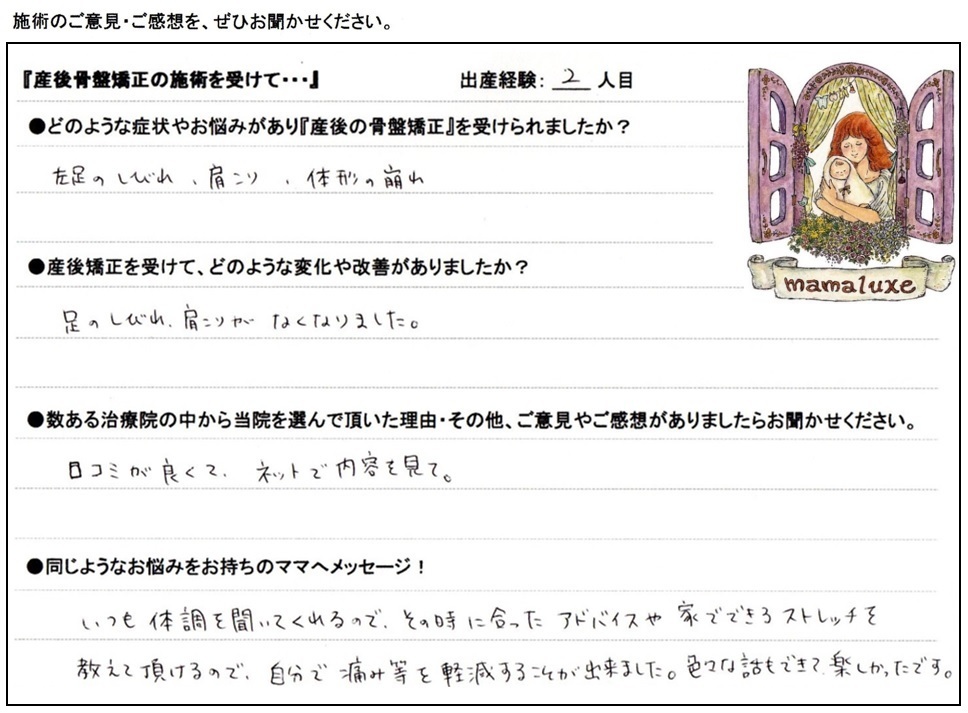 施術のご意見・ご感想を、ぜひお聞かせください。
『産後骨盤矯正の施術を受けて・・・』 出産経験: 2 人目
●どのような症状やお悩みがあり『産後の骨盤矯正』を受けられましたか？
左足のしびれ、肩こり、体形の崩れ
●産後矯正を受けて、どのような変化や改善がありましたか？
足のしびれ、肩こりが なくなりました。
mamaluxe
●数ある治療院の中から当院を選んで頂いた理由・その他、ご意見やご感想がありましたらお聞かせください。
口コミが良くて、ネットで内容を見て。
●同じようなお悩みをお持ちのママへメッセージ！
いつも体調を聞いてくれるので、その時に合ったアドバイスや家でできるストレッチを
教えて頂けるので、自分で痛み等を軽減することが出来ました。色々な話もできて、楽しかったです。